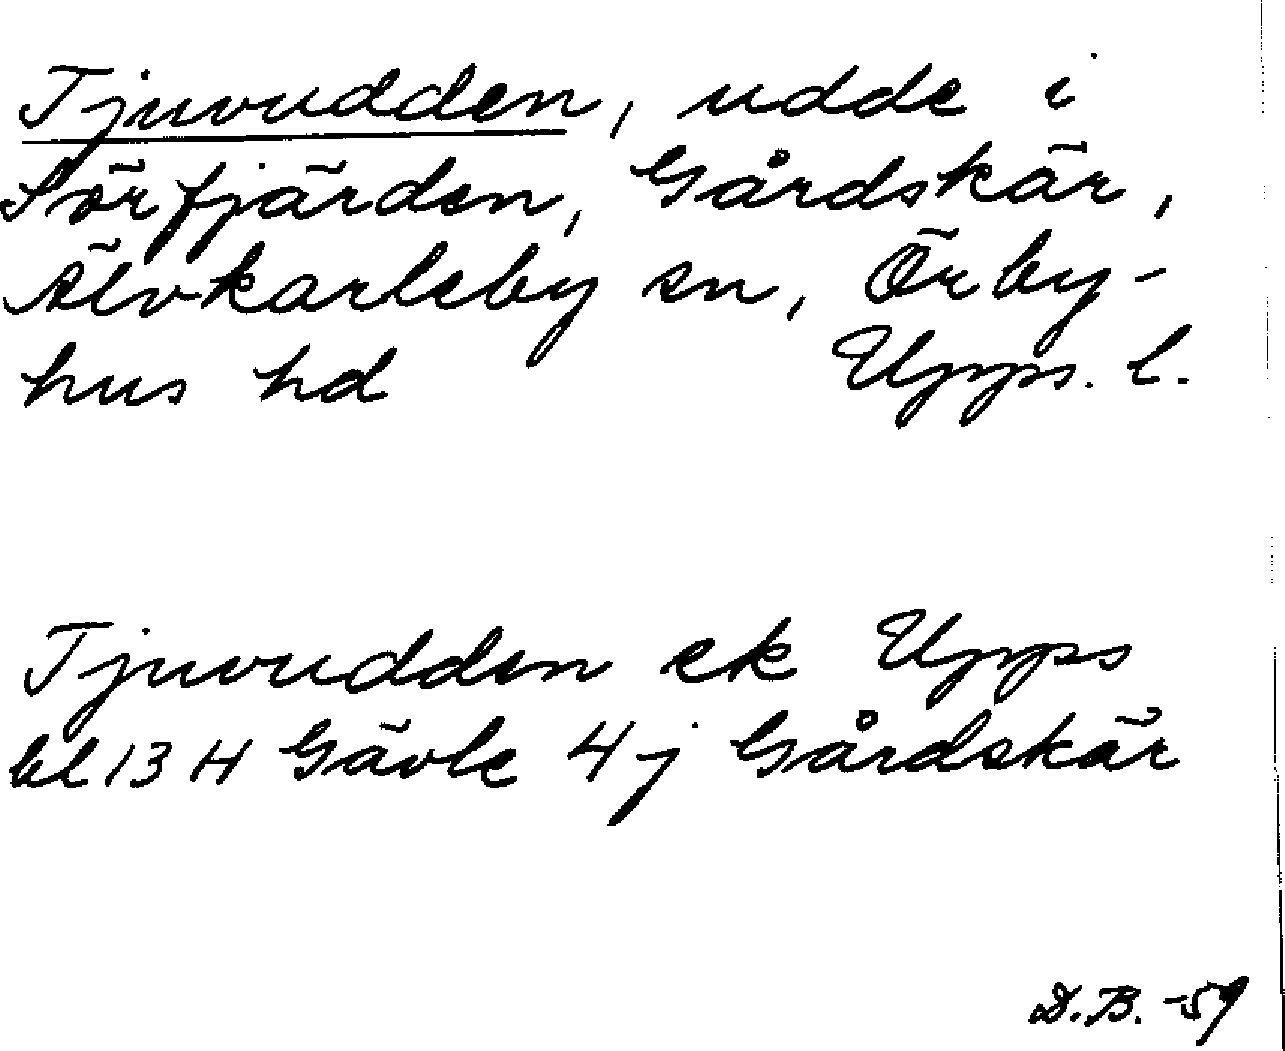 Tjuvudden, udde i
Sörfjärden, Gårdskär,
Älvkarleby sn, Örby-
hus hd Upps. l.
Tjuvudden ek Upps
bl 13 H Gävle 4 j Gårdskär
D.B. -59